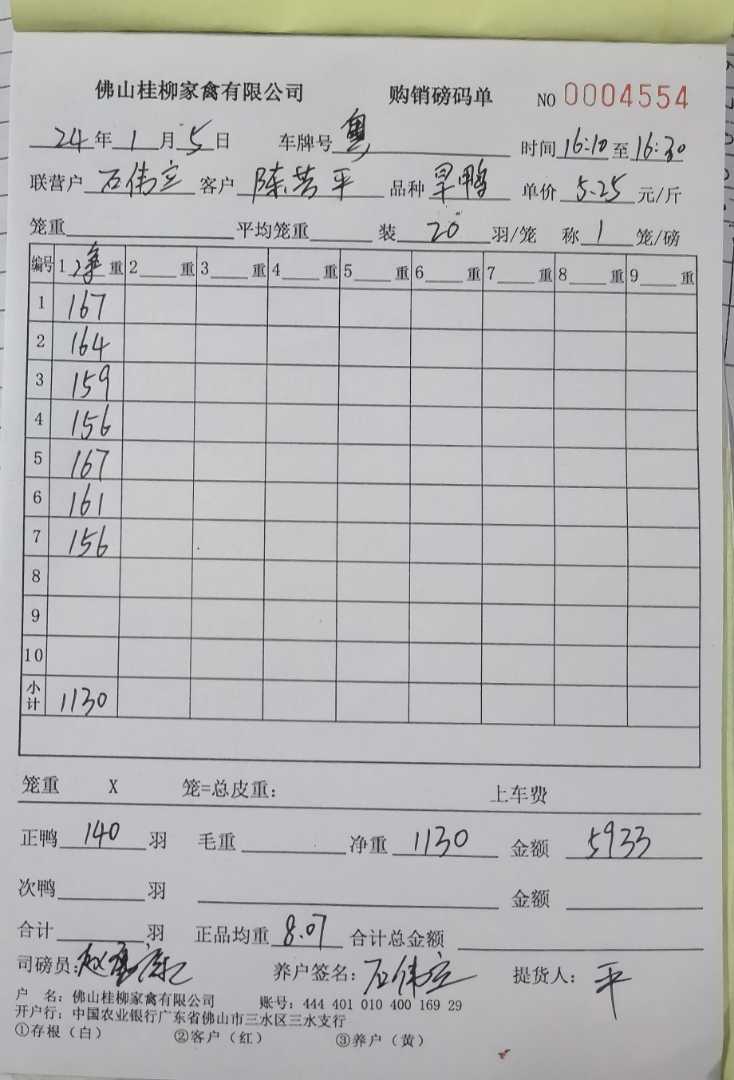 佛山桂柳家禽有限公司 购销磅码单 NO 0004554
24年1月5日 车牌号 粤 时间16:10至16:30
联营户 石伟立 客户 陈芳平 品种 旱鸭 单价 5.25 元/斤
笼重 平均笼重 装 20 羽/笼 称 1 笼/磅
编号 1 净 重 2 重 3 重 4 重 5 重 6 重 7 重 8 重 9 重
1 167
2 164
3 159
4 156
5 167
6 161
7 156
8
9
10
小计 1130
笼重 X 笼=总皮重: 上车费
正鸭 140 羽 毛重 净重 1130 金额 5933
次鸭 羽 金额
合计 羽 正品均重 8.07 合计总金额
司磅员: 养户签名: 石伟立 提货人: 平
户 名: 佛山桂柳家禽有限公司 账号: 444 401 010 400 169 29
开户行: 中国农业银行广东省佛山市三水区三水支行
①存根(白) ②客户(红) ③养户(黄)